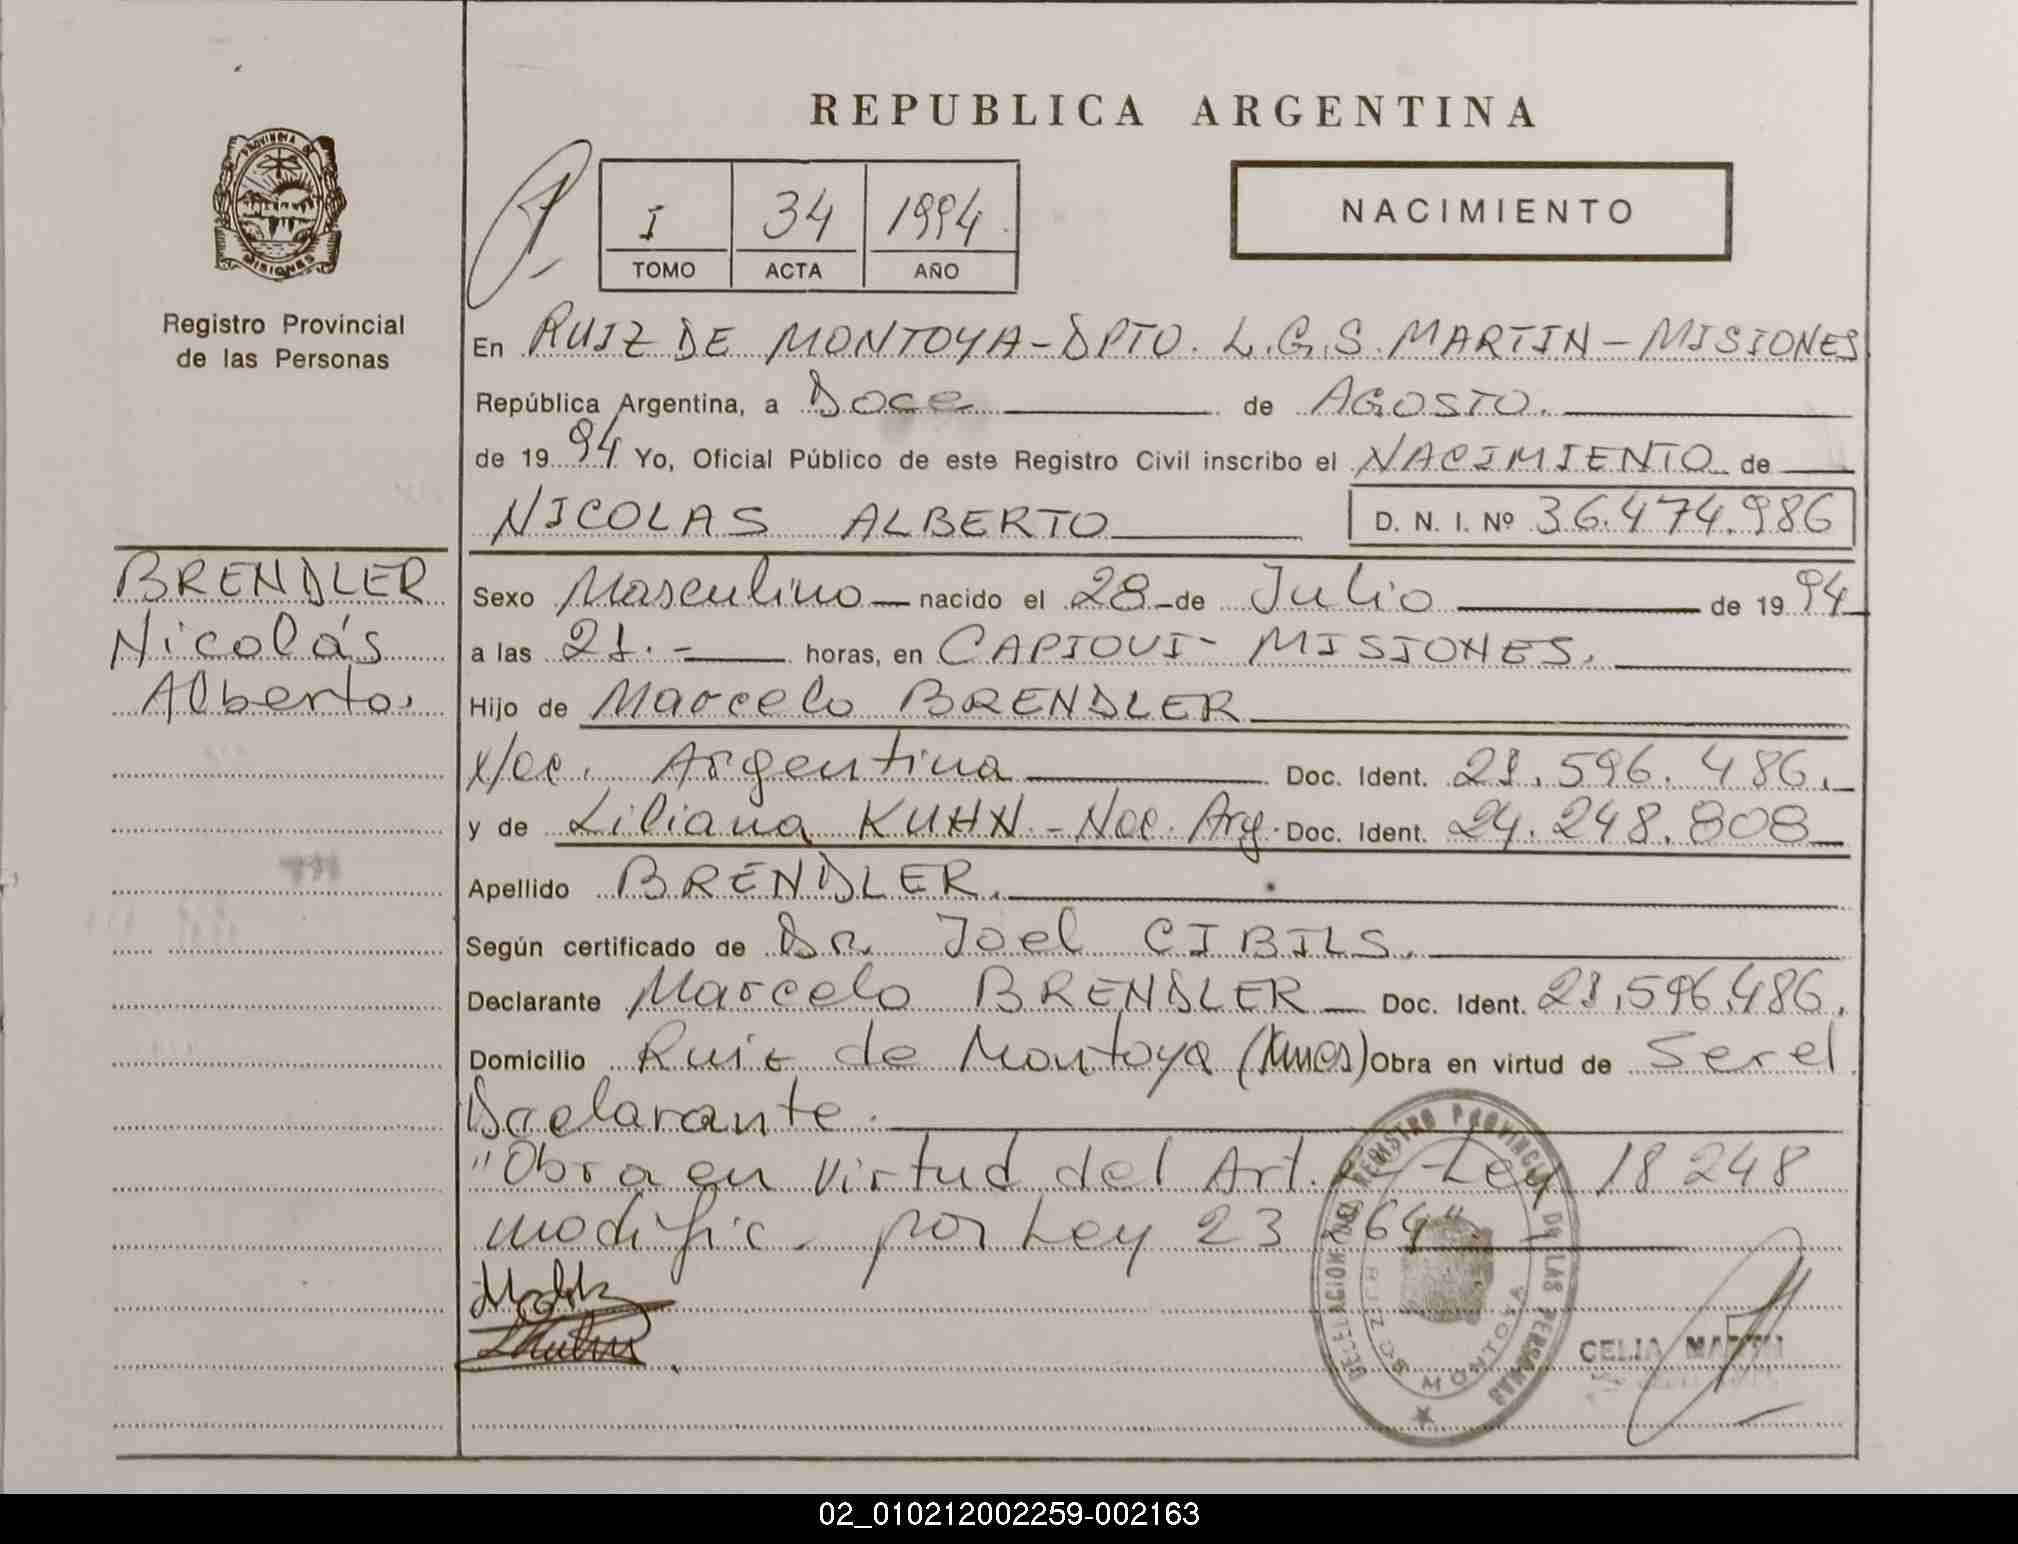 REPUBLICA ARGENTINA
PROVINCIA DE
MISIONES
Registro Provincial
de las Personas
I 34 1994
TOMO ACTA AÑO
NACIMIENTO
En RUIZ DE MONTOYA-DPTO. L.G.S. MARTIN-MISIONES
República Argentina, a Doce de AGOSTO.
de 1994 Yo, Oficial Público de este Registro Civil inscribo el NACIMIENTO de
NICOLAS ALBERTO D. N. I. Nº 36.474.986
BRENDLER
Nicolás
Alberto.
Sexo Masculino nacido el 28 de Julio de 1994
a las 21.- horas, en CAPIOVI- MISIONES.
Hijo de Marcelo BRENDLER
Nac. Argentina Doc. Ident. 21.596.486.
y de Liliana KUHN.-Nac. Arg. Doc. Ident. 24.248.808
Apellido BRENDLER.
Según certificado de Dr. Joel CIBILS.
Declarante Marcelo BRENDLER Doc. Ident. 21.596.486.
Domicilio Ruiz de Montoya (Mnes) Obra en virtud de Ser el
Declarante.
"Obra en virtud del Art. Ley 18 248
modific. por Ley 23 264"
DELEGACION DEL REGISTRO PROVINCIAL DE LAS PERSONAS
RUIZ DE MONTOYA
CELIA MARTIN
02_010212002259-002163